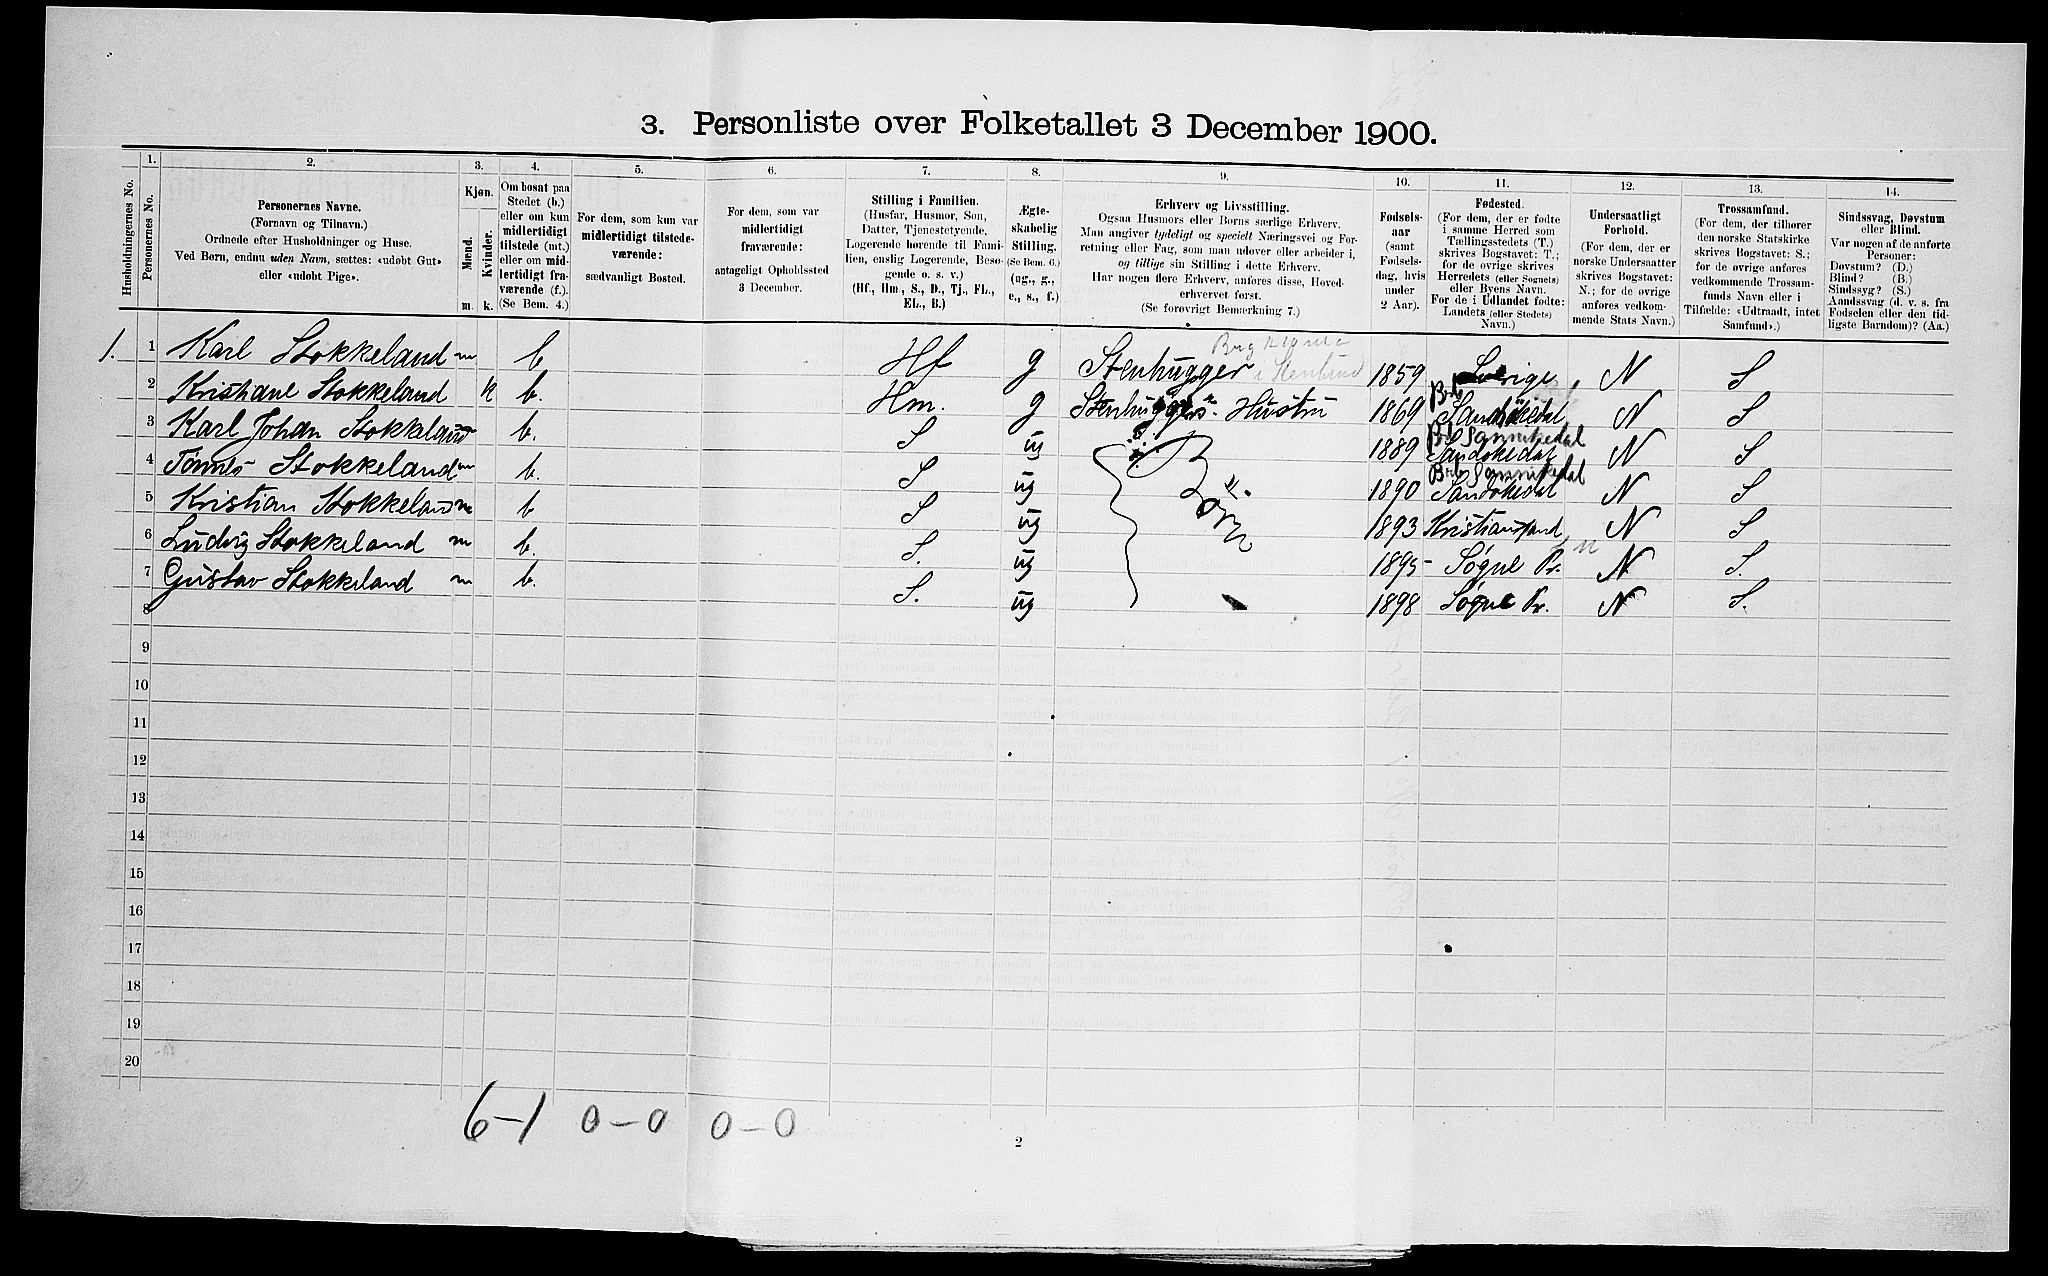 3. Personliste over Folketallet 3 December 1900.
1. 2. 3. 4. 5. 6. 7. 8. 9. 10. 11. 12. 13. 14.
Husholdningernes No.
Personernes No.
Personernes Navne.
(Fornavn og Tilnavn.)
Ordnede efter Husholdninger og Huse.
Ved Børn, endnu uden Navn, sættes: «udøbt Gut»
eller «udøbt Pige».
Kjøn.
Mænd.
Kvinder.
m. k.
Om bosat paa
Stedet (b.)
eller om kun
midlertidigt
tilstede (mt.)
eller om mid-
lertidigt fra-
værende (f.).
(Se Bem. 4.)
For dem, som kun var
midlertidigt tilstede-
værende:
sædvanligt Bosted.
For dem, som var
midlertidigt
fraværende:
antageligt Opholdssted
3 December.
Stilling i Familien.
(Husfar, Husmor, Søn,
Datter, Tjenestetyende,
Logerende hørende til Fami-
lien, enslig Logerende, Besø-
gende o. s. v.)
(Hf., Hm., S., D., Tj., FL.,
EL., B.)
Ægte-
skabelig
Stilling.
(Se Bem. 6.)
(ug., g.,
e., s., f.)
Erhverv og Livsstilling.
Ogsaa Husmors eller Børns særlige Erhverv.
Man angiver tydeligt og specielt Næringsvei og For-
retning eller Fag, som man udøver eller arbeider i,
og tillige sin Stilling i dette Erhverv.
Har nogen flere Erhverv, anføres disse, Hoved-
erhvervet først.
(Se forøvrigt Bemærkning 7.)
Fødsels-
aar
(samt
Fødsels-
dag, hvis
under
2 Aar).
Fødested.
(For dem, der er fødte
i samme Herred som
Tællingsstedets (T.)
skrives Bogstavet: T.;
for de øvrige skrives
Herredets (eller Sognets)
eller Byens Navn.
For de i Udlandet fødte:
Landets (eller Stedets)
Navn.)
Undersaatligt
Forhold.
(For dem, der er
norske Undersaatter
skrives Bogstavet:
N.; for de øvrige
anføres vedkom-
mende Stats Navn.)
Trossamfund.
(For dem, der tilhører
den norske Statskirke
skrives Bogstavet: S.;
for de øvrige anføres
vedkommende Trossam-
funds Navn eller i
Tilfælde: «Udtraadt, intet
Samfund».)
Sindssvag, Døvstum
eller Blind.
Var nogen af de anførte
Personer:
Døvstum? (D.)
Blind? (B.)
Sindssyg? (S.)
Aandssvag (d. v. s. fra
Fødselen eller den tid-
ligste Barndom)? (Aa.)
1. 1 Karl Stokkeland m b Hf g Stenhugger i Stenbrud 1859 Sverige N S
2 Kristiane Stokkeland k b. Hm. g Stenhuggers Hustru 1869 Sandøkedal N S
3 Karl Johan Stokkeland m b. S ug 1889 Brb Sannikedal Sandøkedal N S
4 Tønnes Stokkeland m b. S ug 1890 Brb Sannikedal Sandøkedal N S
5 Kristian Stokkeland m b S ug 1893 Kristianssand N S
6 Ludvig Stokkeland m b. S. ug 1895 Søgne Pr. N S.
7 Gustav Stokkeland m b. S. ug 1898 Søgne Pr. N S.
8
9
10
11
12
13
14
15
16
17
18
19
20
6-1 0-0 0-0
2